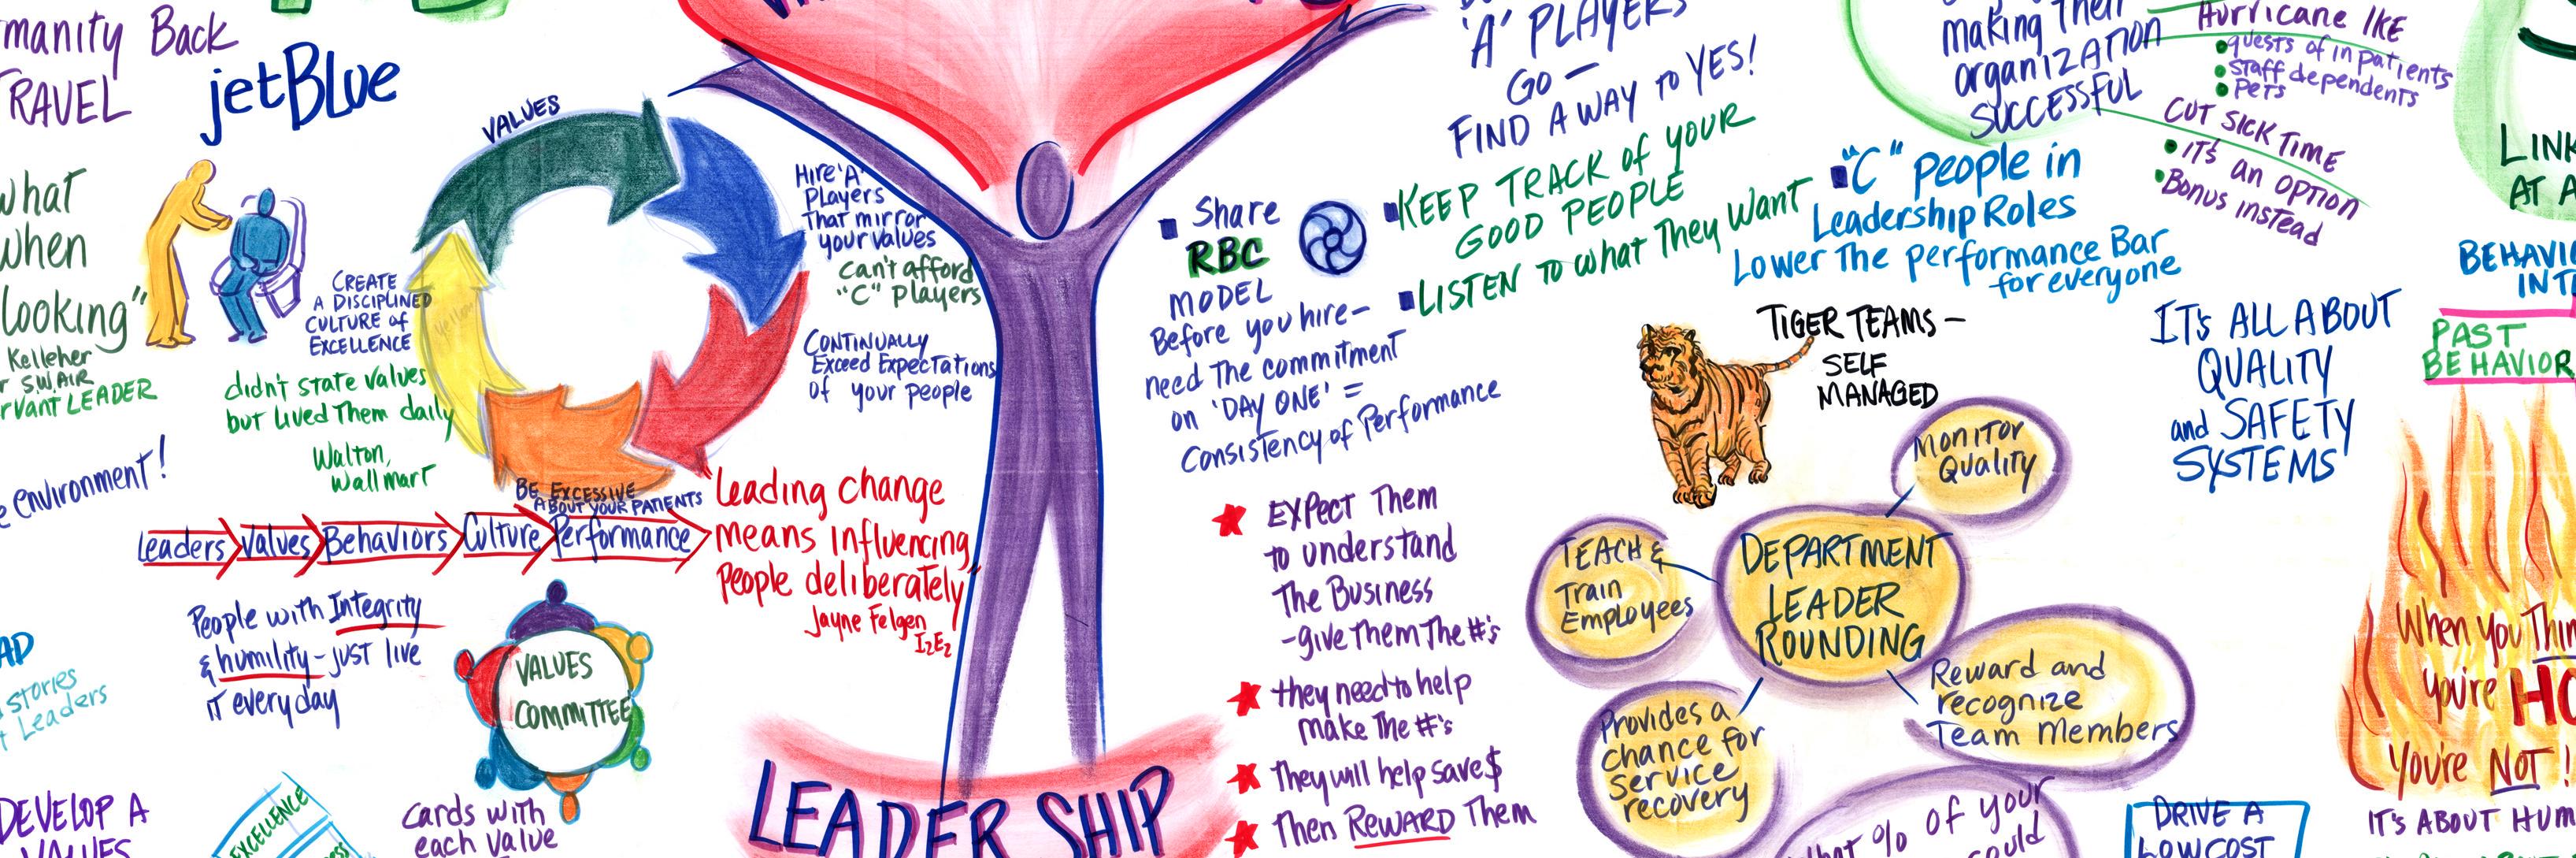 manity Back
TRAVEL
jetBlue
what
when
looking"
Kelleher
SWAIR
rvant LEADER
environment!
VALUES
CREATE
A DISCIPLINED
CULTURE of
EXCELLENCE
didn't state values
but lived them daily
Walton,
Wallmart
yellow
Hire 'A'
Players
That mirror
your values
can't afford
"C" players
CONTINUALLY
Exceed Expectations
of your people
BE EXCESSIVE
ABOUT YOUR PATIENTS
Leaders Values Behaviors Culture Performance
Leading change
means influencing
People deliberately"
Jayne Felgen
I2E2
People with Integrity
& humility - just live
it everyday
VALUES
COMMITTEE
AD
stories
Leaders
DEVELOP A
VALUES
EXCELLENCE
cards with
each value
LEADERSHIP
'A' PLAYERS
GO —
FIND A WAY to YES!
Share
RBC
MODEL
Before you hire -
need the commitment
on 'DAY ONE' =
Consistency of Performance
KEEP TRACK of YOUR
GOOD PEOPLE
LISTEN to what They Want
EXPECT Them
to understand
The Business
- give them the #'s
they need to help
make the #'s
They will help save $
Then REWARD Them
making their
organIZATION
SUCCESSFUL
Hurricane IKE
guests of in patients
staff dependents
PETS
CUT SICK TIME
IT'S an OPTION
Bonus instead
"C" people in
Leadership Roles
Lower The performance Bar
for everyone
TIGER TEAMS -
SELF
MANAGED
IT's ALL ABOUT
QUALITY
and SAFETY
SYSTEMS
MONITOR
Quality
TEACH &
Train
Employees
DEPARTMENT
LEADER
ROUNDING
Provides a
chance for
service
recovery
Reward and
recognize
Team Members
% of your
LINK
AT A
BEHAVI
INT
PAST
BEHAVIOR
When you Thin
you're HO
You're NOT!
IT'S ABOUT HUM
DRIVE A
LOW COST